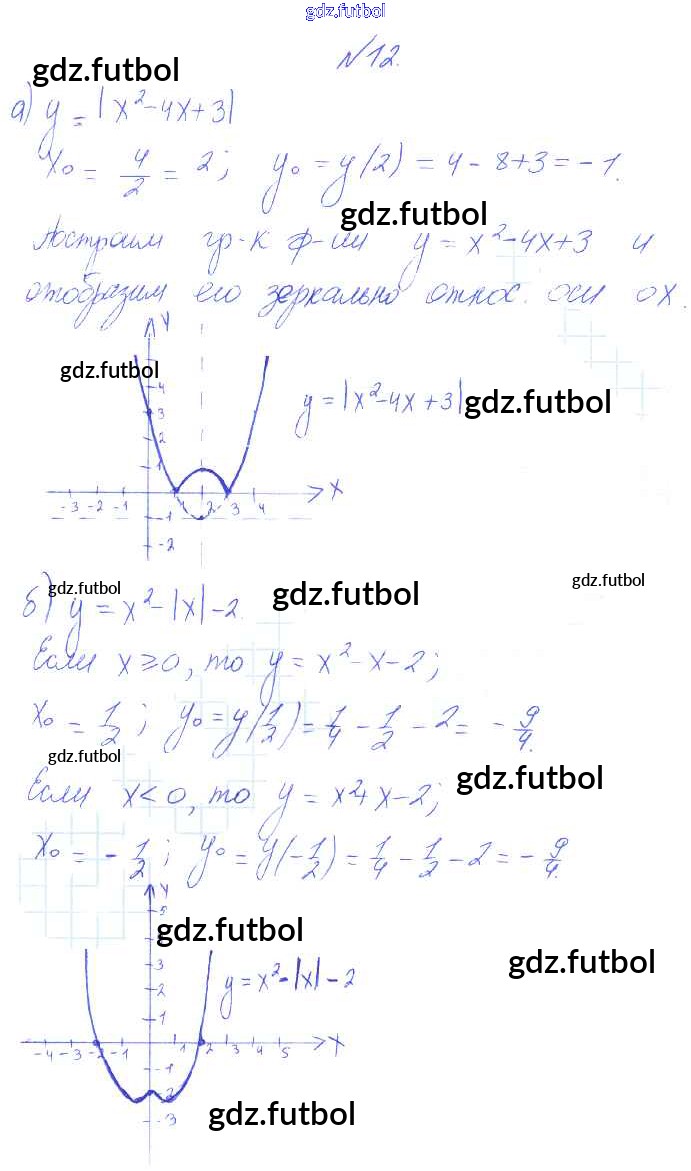 gdz.futbol
№12.
gdz.futbol
а) y = |x²-4x+3|
x₀ = 4/2 = 2; y₀ = y(2) = 4 - 8+3 = -1.
gdz.futbol
Построим гр-к ф-ии y = x²-4x+3 и
отобразим его зеркально относ. оси ox.
y
gdz.futbol
4
3
2
1
y = |x²-4x+3|
gdz.futbol
-3 -2 -1 1 2 3 4 x
-1
-2
gdz.futbol
gdz.futbol
gdz.futbol
б) y = x²-|x|-2.
Если x≥0, то y = x²-x-2;
x₀ = 1/2; y₀ = y(1/2) = 1/4 - 1/2 - 2 = - 9/4.
gdz.futbol
gdz.futbol
Если x<0, то y = x²+x-2;
x₀ = - 1/2; y₀ = y(-1/2) = 1/4 - 1/2 - 2 = - 9/4.
y
5
gdz.futbol
gdz.futbol
3
2
1
y = x²-|x|-2
-4 -3 -2 -1 1 2 3 4 5 x
-1
-3
gdz.futbol